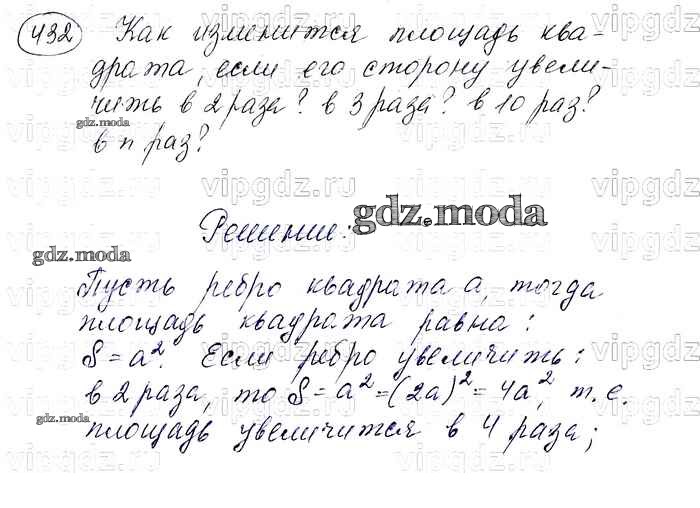 432 Как изменится площадь ква-
драта, если его сторону увели-
чить в 2 раза? в 3 раза? в 10 раз?
в n раз?
Решение:
Пусть ребро квадрата a, тогда
площадь квадрата равна:
S = a². Если ребро увеличить:
в 2 раза, то S = a² = (2a)² = 4a², т.е.
площадь увеличится в 4 раза;
gdz.moda
gdz.moda
gdz.moda
gdz.moda
vipgdz.ru